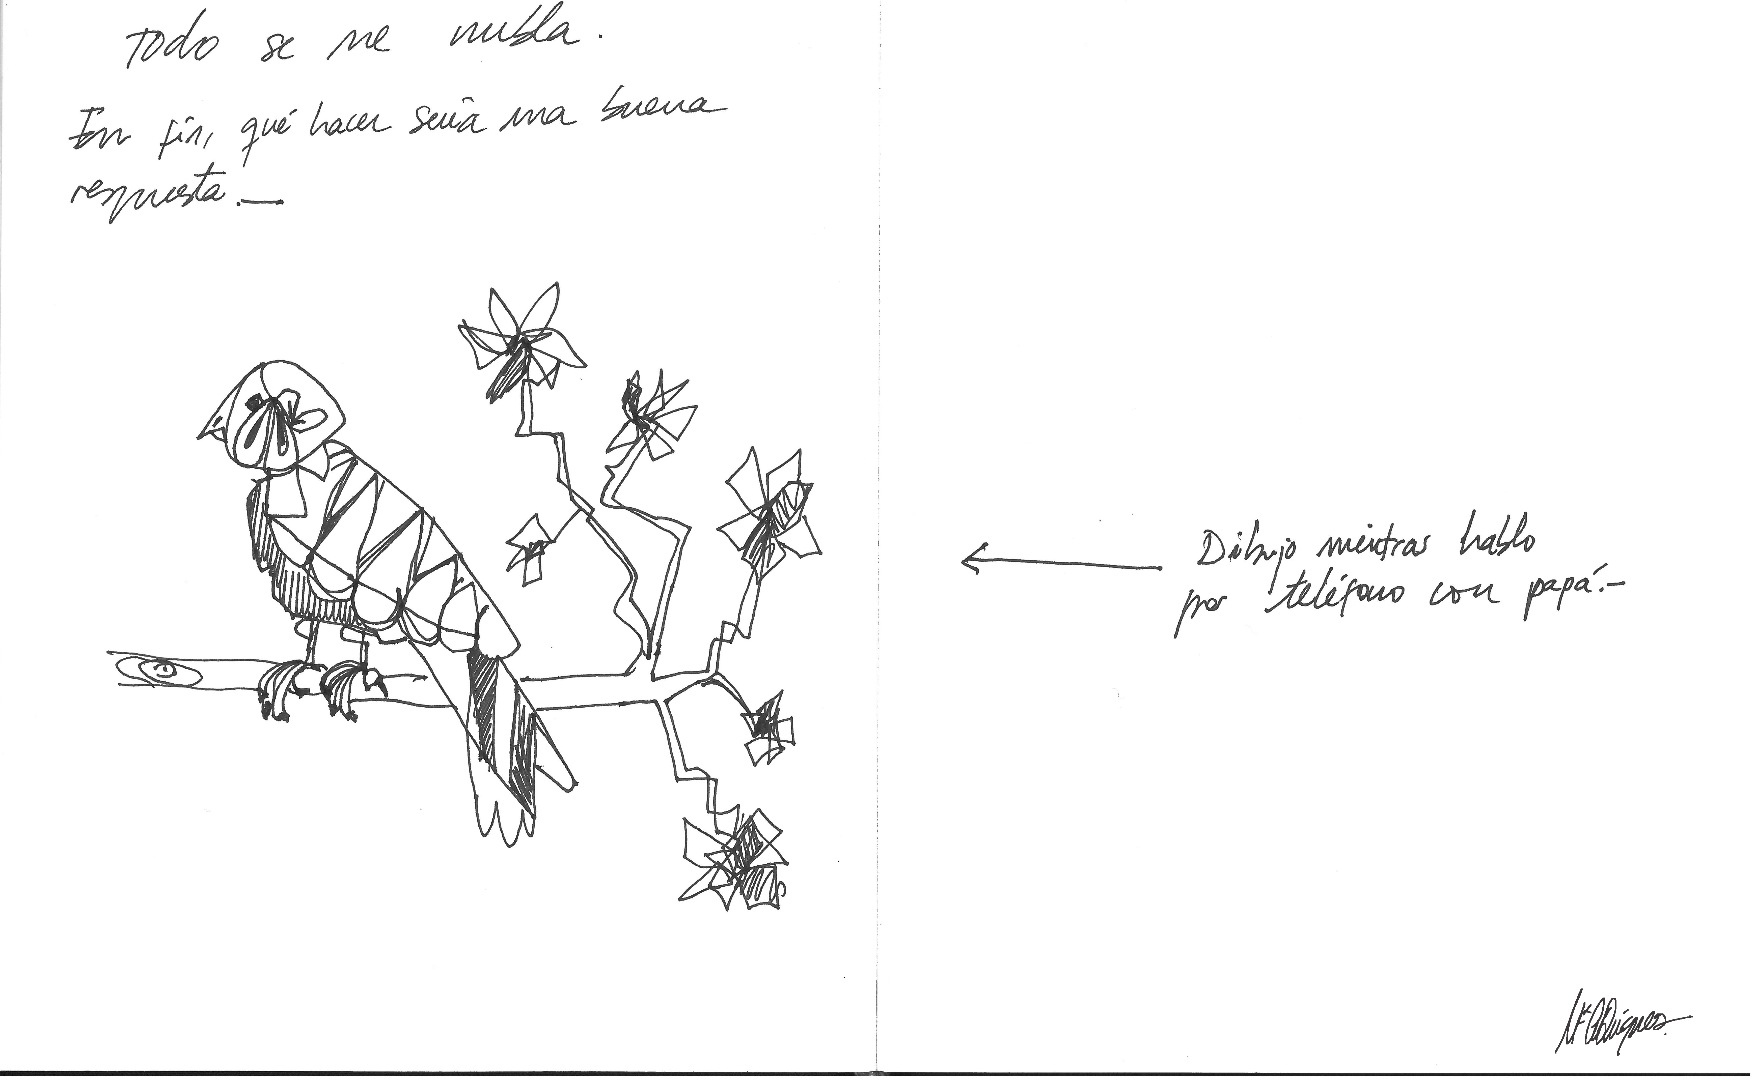 Todo se me nubla.
En fin, qué hacer sería una buena
respuesta.—
Dibujo mientras hablo
por teléfono con papá.—